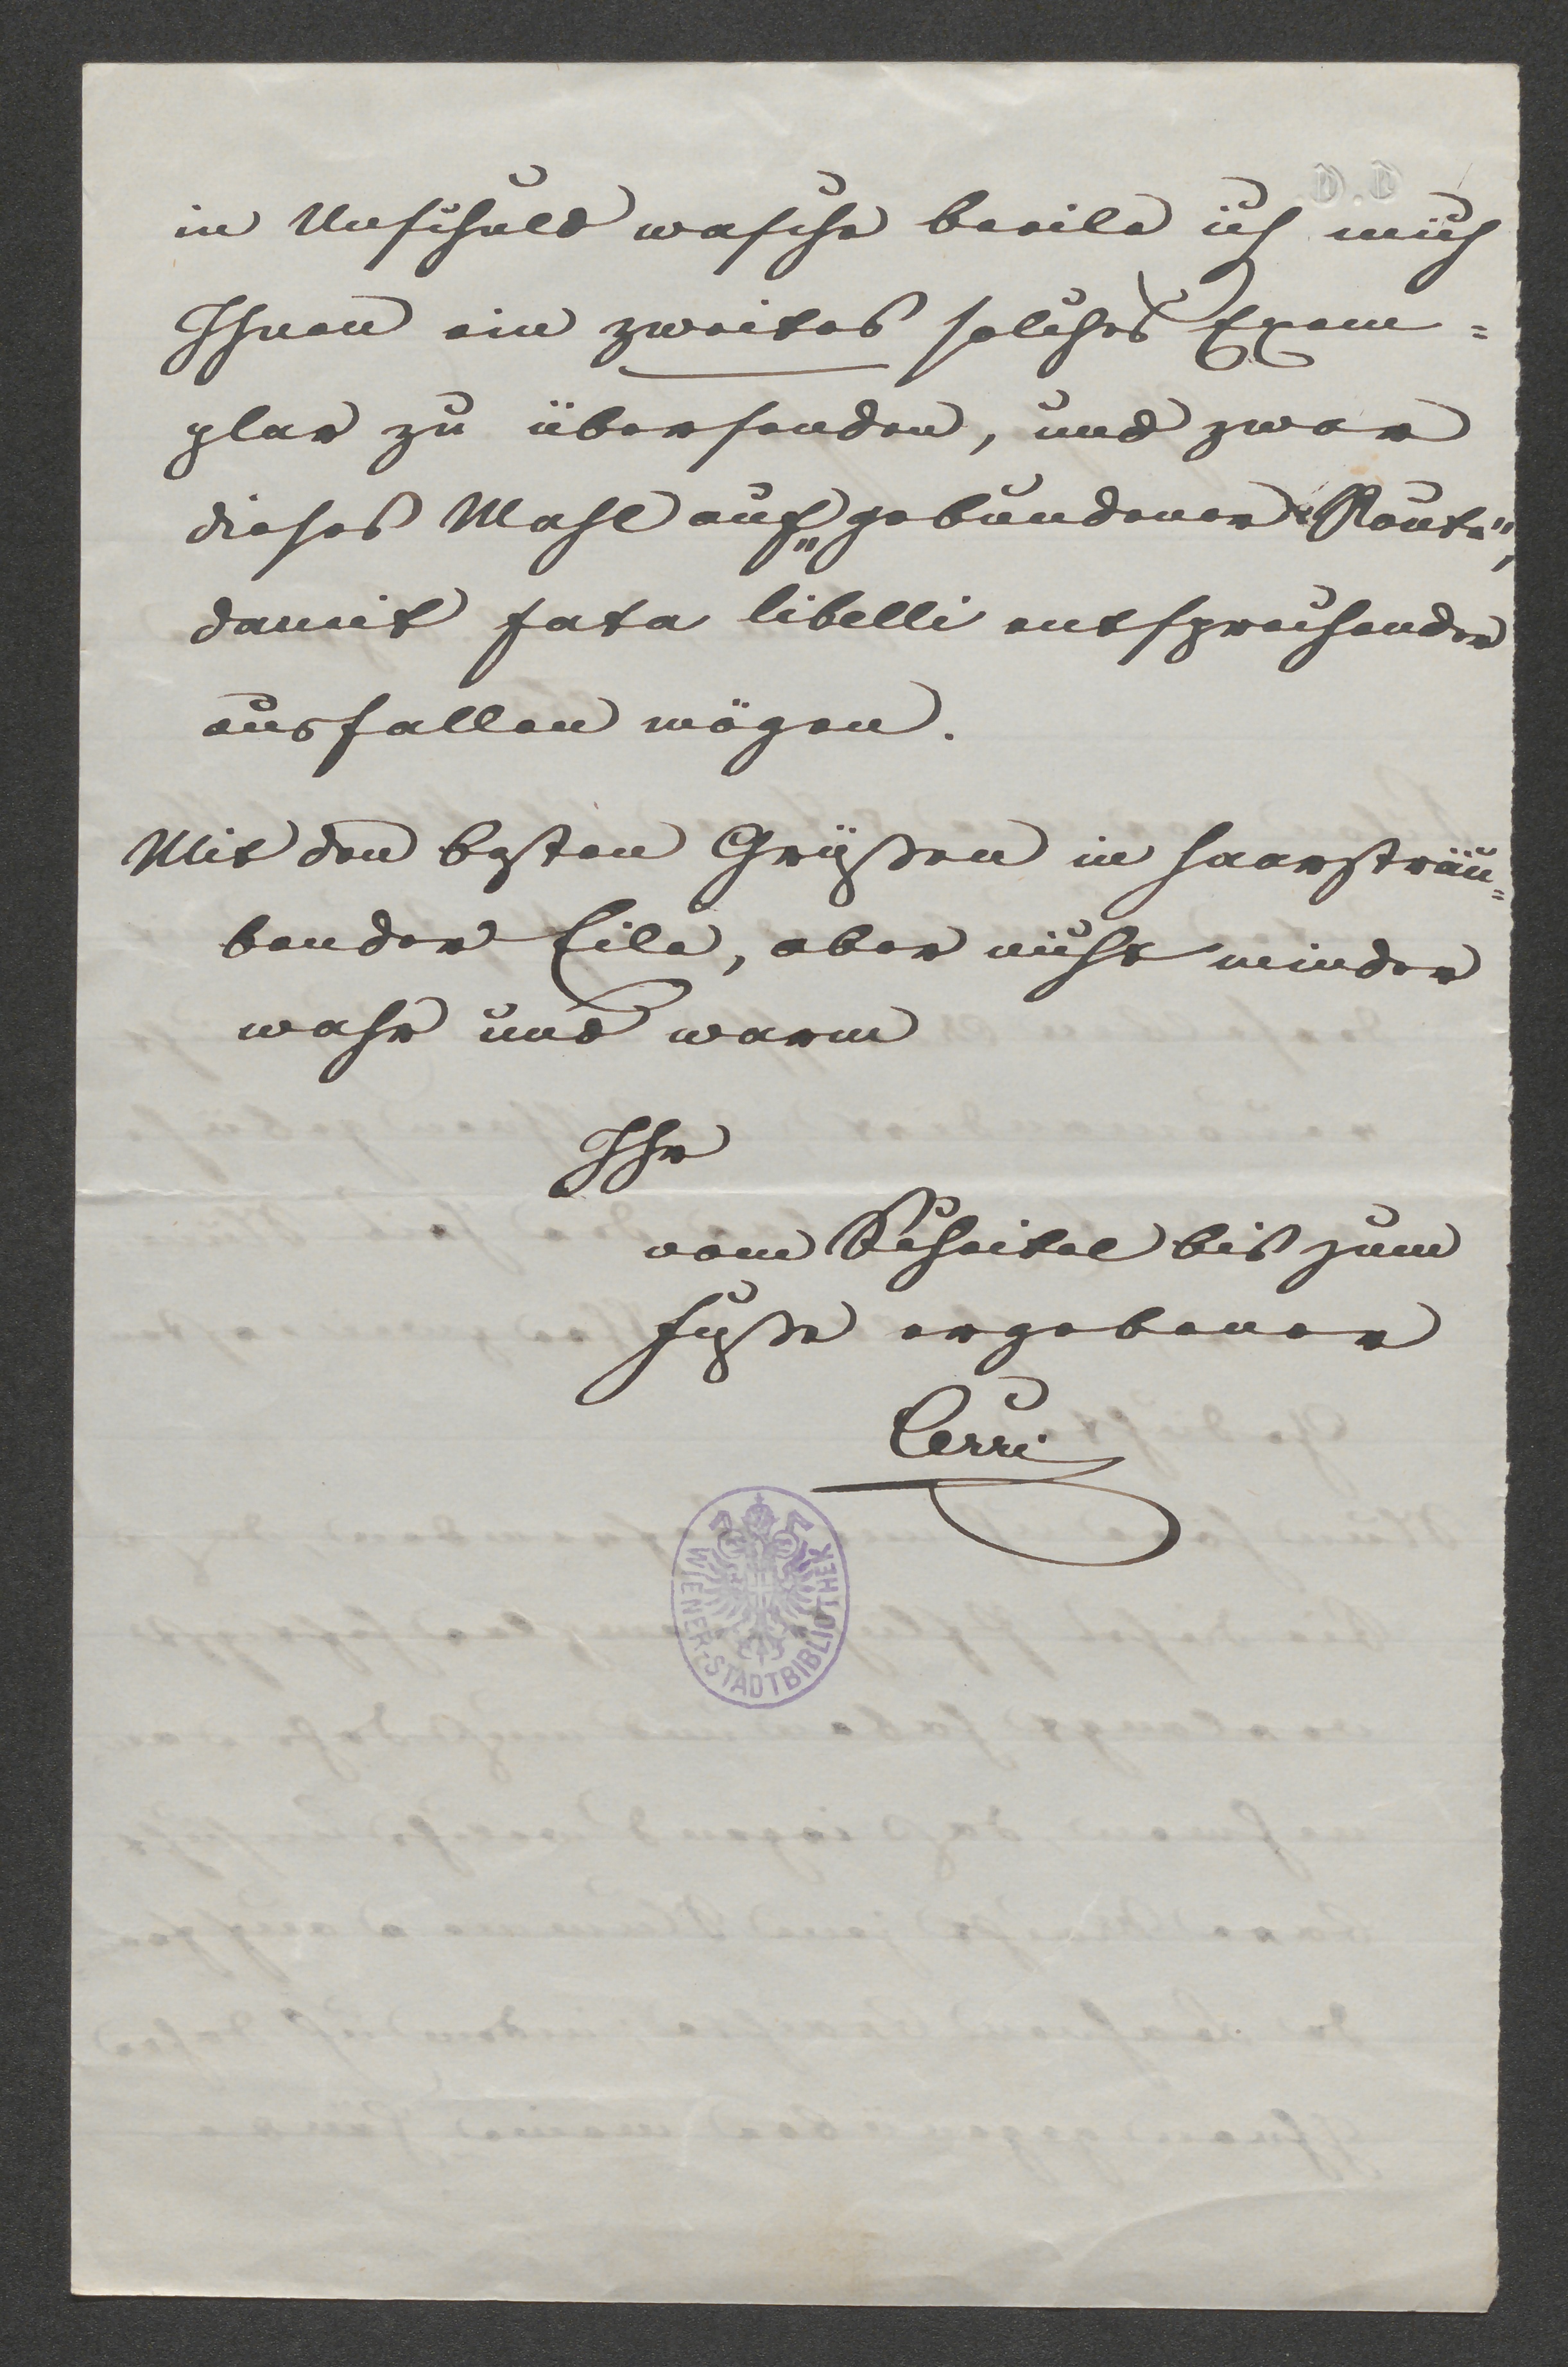 in Unschuld wasche beeile ich mich
Ihnen ein zweites solches Exem=
plar zu übersenden, und zwar
dieses Mahl auf „gebundener Route",
damit fata libelli entsprechender
ausfallen mögen.
Mit den besten Grüßen in haarsträu=
bender Eile, aber nicht minder
wahr und warm
Ihr
vom Scheitel bis zum
Fuße ergebener
Cerri
WIENER-STADTBIBLIOTHEK